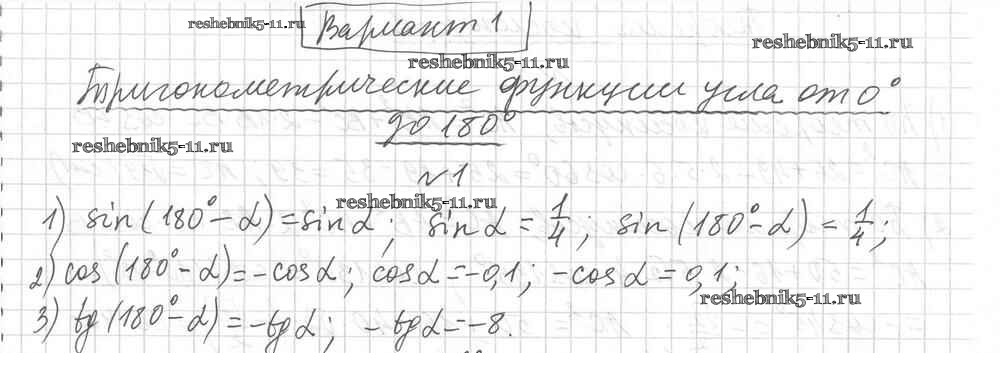 reshebnik5-11.ru
Вариант 1
reshebnik5-11.ru
reshebnik5-11.ru
Тригонометрические функции угла от 0°
до 180°
reshebnik5-11.ru
№1
reshebnik5-11.ru
1) sin(180°-α)=sinα; sinα=1/4; sin(180°-α)=1/4;
2) cos(180°-α)=-cosα; cosα=-0,1; -cosα=0,1;
reshebnik5-11.ru
3) tg(180°-α)=-tgα; -tgα=-8.